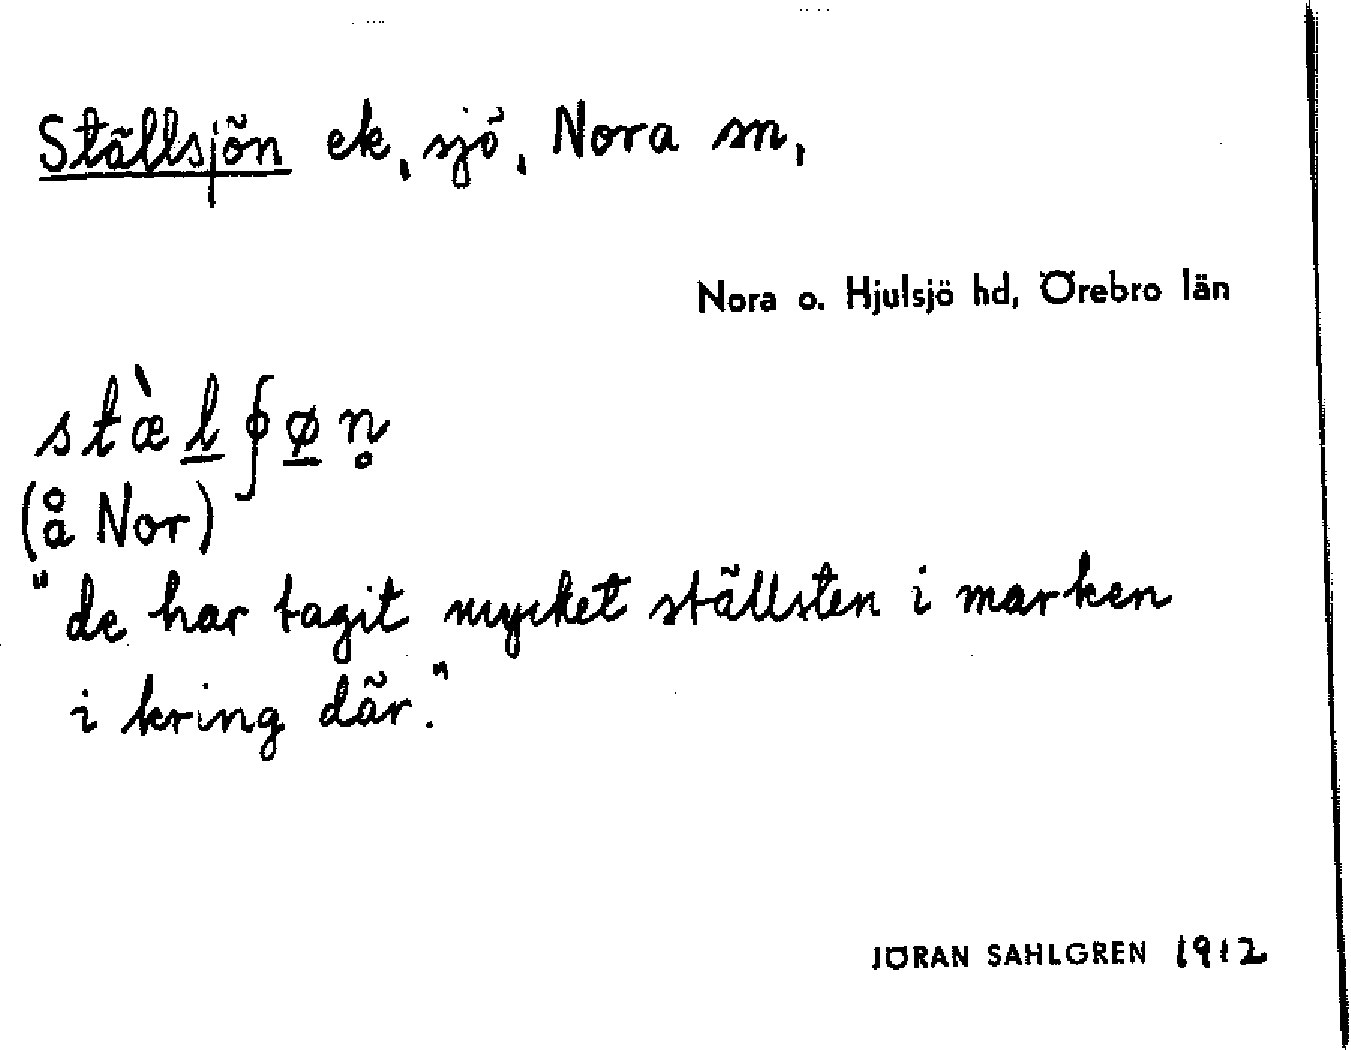 Ställsjön ek, sjö, Nora sn,
Nora o. Hjulsjö hd, Örebro län
stæ̀l̲ʄø̲n̥
(å Nor)
"de har tagit mycket ställsten i marken
i kring där."
JÖRAN SAHLGREN 1912